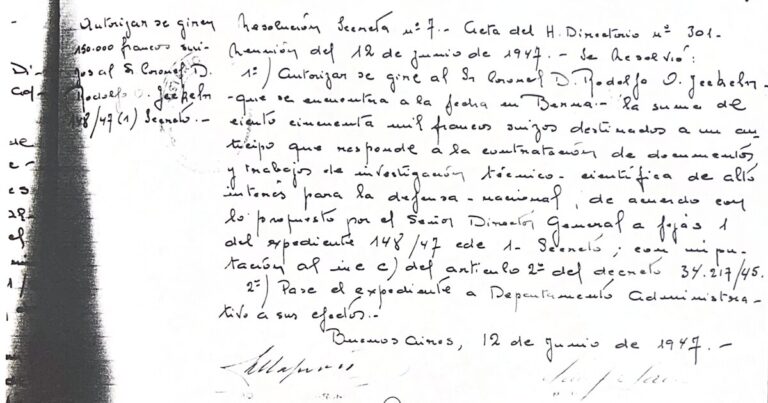 Autorizar se giren
150.000 francos sui-
zos al Sr Coronel D.
Rodolfo O. Jeckeln
148/47 (1) Secreto.-
Resolución Secreta nº 7.- Acta del H. Directorio nº 301-
Reunión del 12 de junio de 1947.- Se Resolvió:
1º) Autorizar se gire al Sr Coronel D. Rodolfo O. Jeckeln-
-que se encuentra a la fecha en Berna- la suma de
ciento cincuenta mil francos suizos destinados a un an-
ticipo que responde a la contratación de documentos
y trabajos de investigación técnico-científica de alto
interés para la defensa-nacional, de acuerdo con
lo propuesto por el Señor Director General a fojas 1
del expediente 148/47 cde 1- Secreto; con impu-
tación al inc c) del artículo 2º del decreto 34.217/45.
2º) Pase el expediente a Departamento Administra-
tivo a sus efectos.-
Buenos Aires, 12 de junio de 1947.-